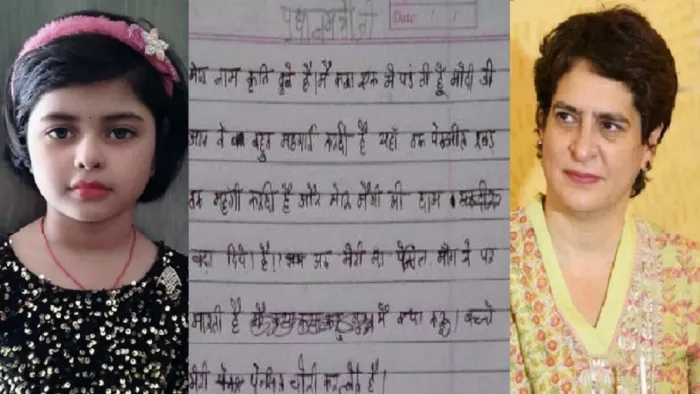 प्रधानमंत्री जी
Date / /
मेरा नाम कृति दुबे है। मैं कक्षा एक में पढ़ती हूँ मोदी जी
आप ने बहुत महगाई करदी है यहाँ तक पेनसील रबड़
तक महगी करदी है और मेरे मैगी की दाम
बढ़ा दिये है। अब मेरी माँ पेंसिल माँग ने पर
मारती है मैं क्या करू। बच्चे
मेरी पेनसिल चोरी कर लेते है।